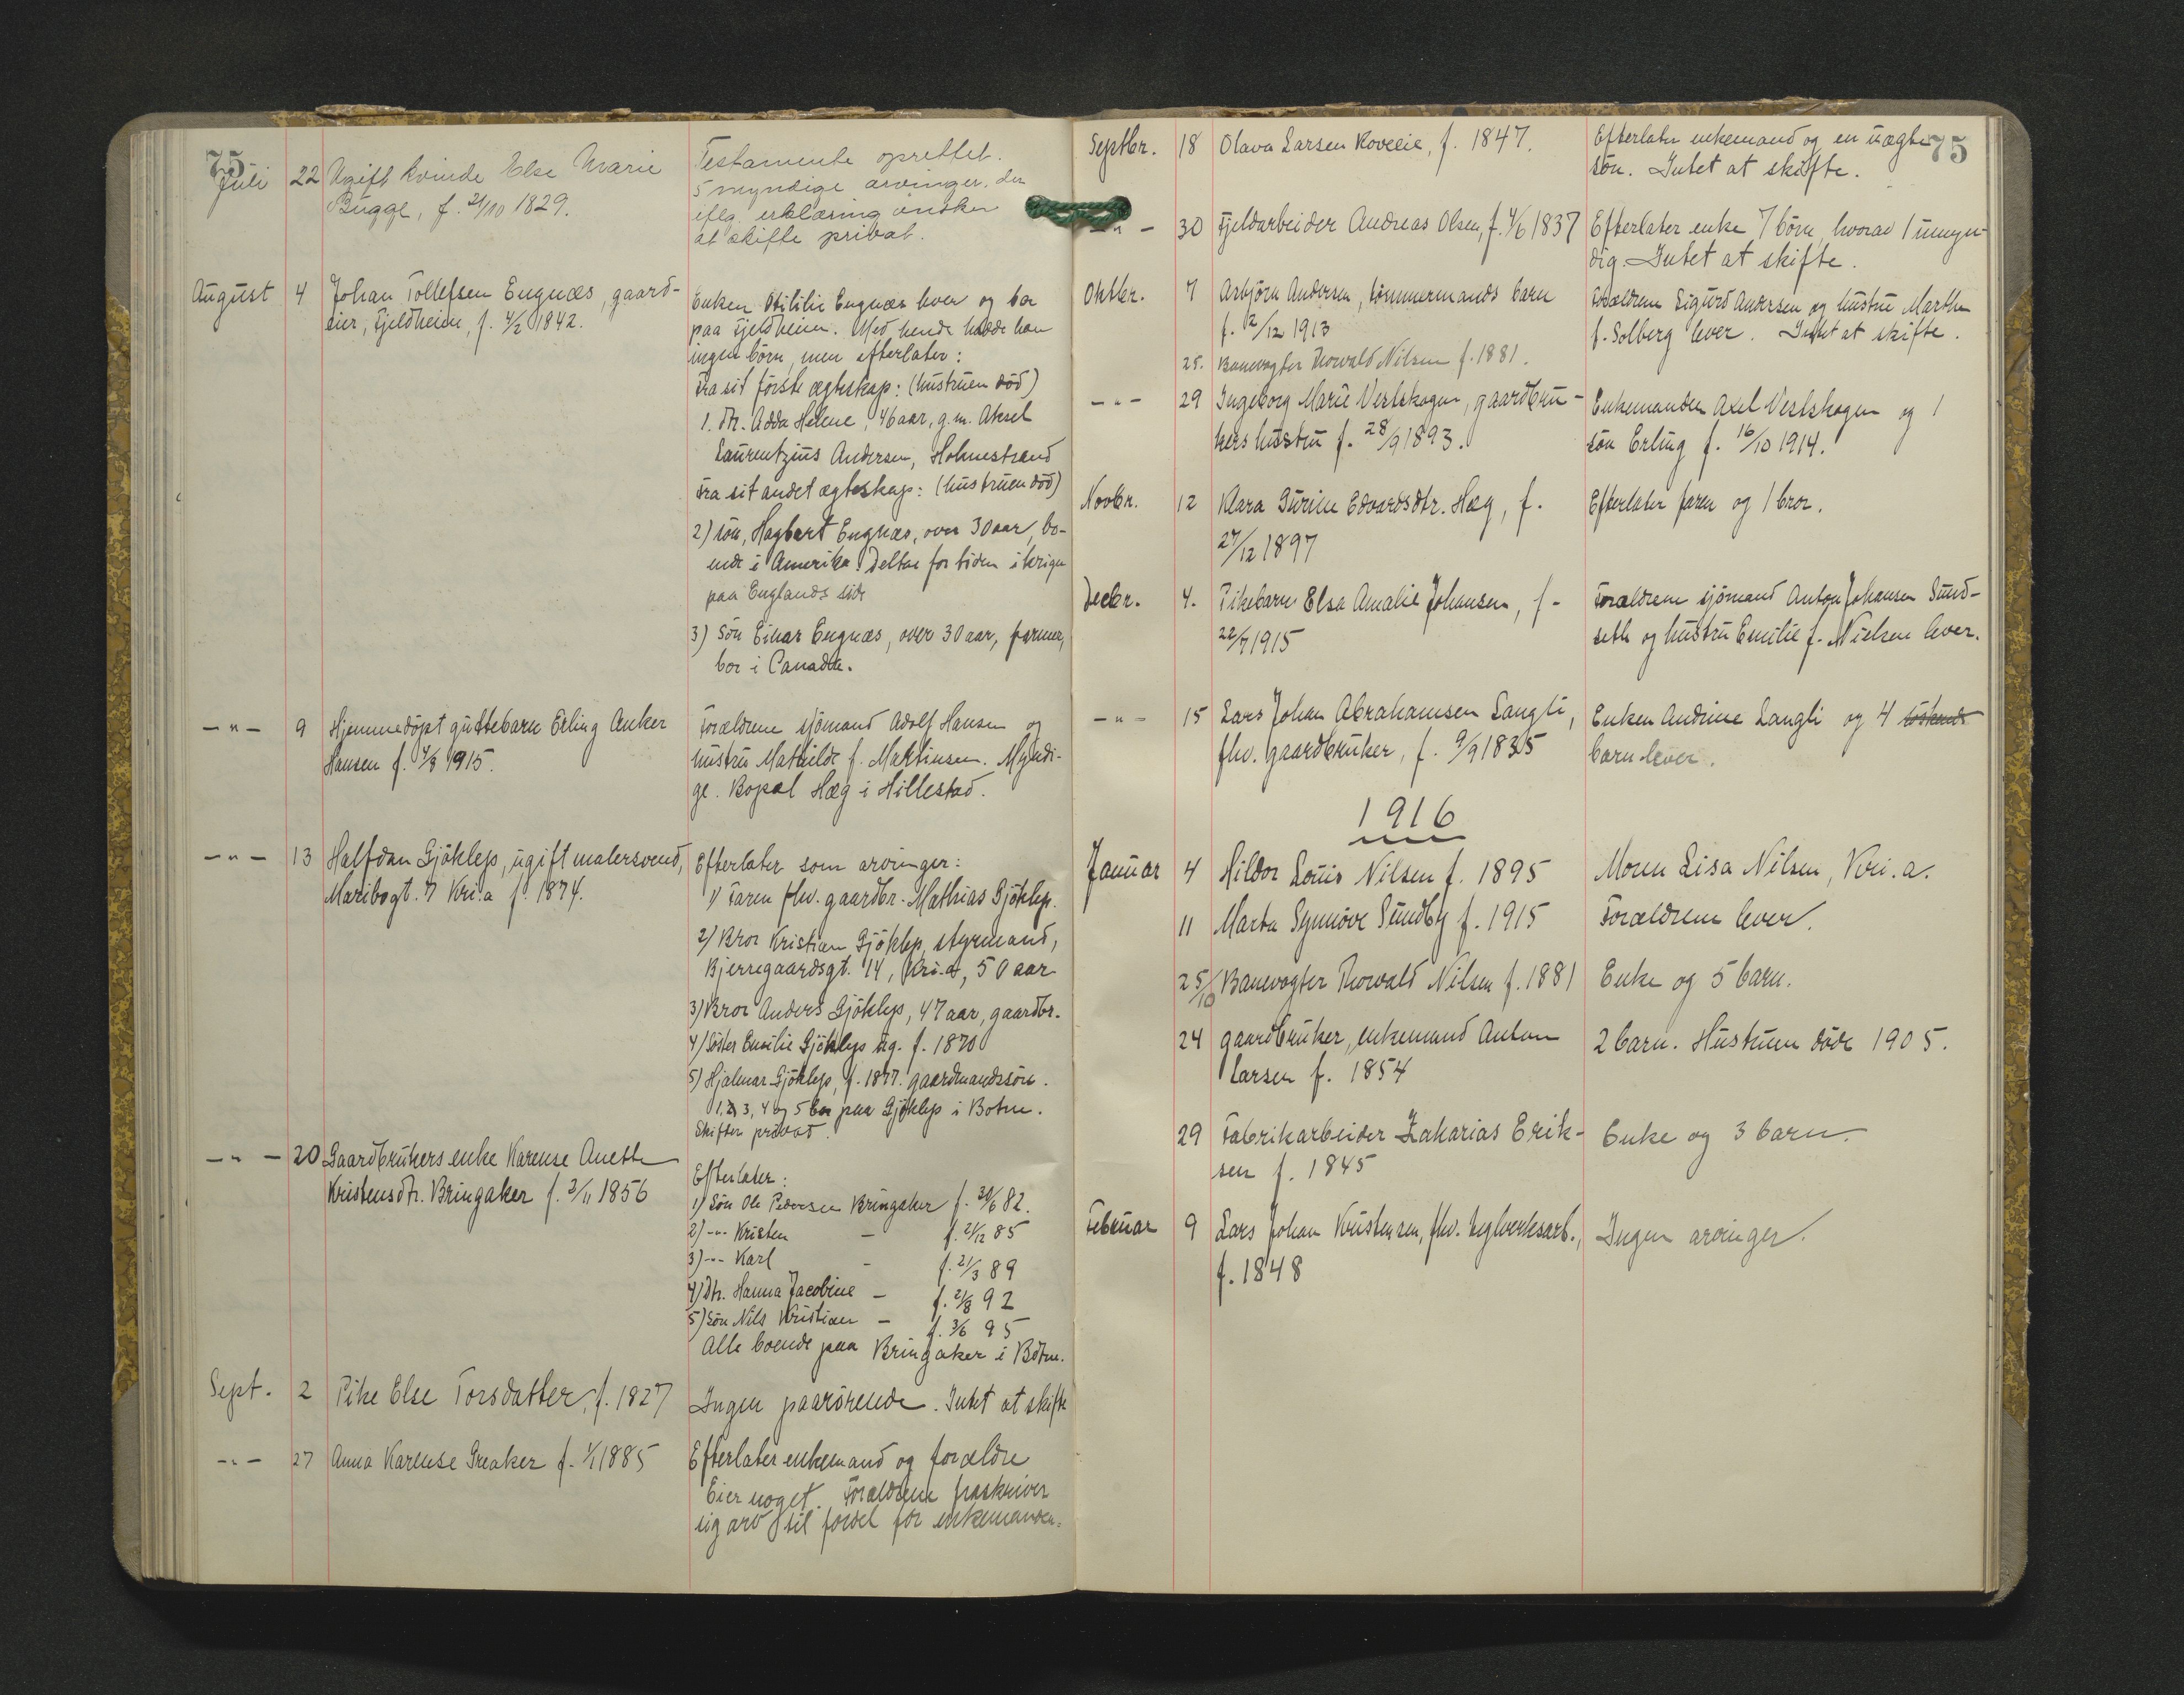 75
Juli 22 Ugift kvinde Else Marie
Bugge, f. 21/10 1829.
Testamente oprettet.
5 myndige arvinger, der
iflg. erklæring ønsker
at skifte privat.
August 4 Johan Tollefsen Engnæs, gaard-
eier, Fjeldheim, f. 4/2 1842.
Enken Otililie Engnæs lever og bor
paa Fjeldheim. Med hende hadde han
ingen børn, men efterlater:
Fra sit første ægteskap: (hustruen død)
1. Dtr. Adda Helene, 46 aar, g.m. Aksel
Laurentzius Andersen, Holmestrand
Fra sit andet ægteskap: (hustruen død)
2) søn, Hagbart Engnæs, over 30 aar, bo-
ende i Amerika. Deltar for tiden i krigen
paa Englands side
3) Søn Einar Engnæs, over 30 aar, farmer,
bor i Canada.
-"- 9 Hjemmedøpt guttebarn Erling Anker
Hansen f. 4/8 1915.
Forældrene sjømand Adolf Hansen og
hustru Mathilde f. Martinsen. Myndi-
ge. Bopæl Hæg i Hillestad.
-"- 13 Halfdan Gjøklep, ugift malersvend,
Maribogt. 7 Kri.a f. 1874.
Efterlater som arvinger:
1) Faren fhv. gaardbr. Mathias Gjøklep.
2) Bror Kristian Gjøklep, styrmand,
Bjerregaardsgt. 14, Kri.a, 50 aar
3) Bror Anders Gjøklep, 47 aar, gaardbr.
4) Søster Emilie Gjøklep ug. f. 1870
5) Hjalmar Gjøklep, f. 1877. gaardmandssøn.
1, 3, 4 og 5 bor paa Gjøklep i Botne.
Skifter privat.
-"- 20 Gaardbrukers enke Karense Anette
Kristensdtr. Bringaker f. 2/11 1856
Efterlater:
1) Søn Ole Pedersen Bringaker f. 30/6 82.
2) -"- Kristen - f. 21/12 85
3) -"- Karl - f. 21/3 89
4) Dtr. Hanna Jacobine - f. 2/8 92
5) Søn Nils Kristian - f. 3/6 95
Alle boende paa Bringaker i Botne.
Sept. 2 Pike Else Torsdatter, f. 1827
Ingen paarørende. Intet at skifte
-"- 27 Anna Karense Greaker f. 1/1 1885
Efterlater enkemand og forældre
Eier noget. Forældrene fraskriver
sig arv til fordel for enkemanden.
75
Septbr. 18 Olava Larsen Roveeie, f. 1847.
Efterlater enkemand og en uægte
søn. Intet at skifte.
-"- 30 Fjeldarbeider Andreas Olsen, f. 4/6 1837
Efterlater enke 7 børn, hvorav 1 umyn-
dig. Intet at skifte.
Oktbr. 7 Asbjørn Andersen, tømmermands barn
f. 12/12 1913
Forældrene Sigurd Andersen og hustru Marthe
f. Solberg lever. Intet at skifte.
25. Banevogter Thorvald Nilsen f. 1881.
-"- 29 Ingeborg Marie Vestskogen, gaardbru-
kers hustru f. 28/9 1893.
Enkemanden Axel Vestskogen og 1
søn Erling f. 16/10 1914.
Novbr. 12 Klara Gurine Edvardsdtr. Hæg, f.
27/12 1897
Efterlater faren og 1 bror.
Decbr. 4. Pikebarn Elsa Amalie Johansen, f.
22/7 1915
Forældrene sjømand Anton Johansen Sund-
seth og hustru Emilie f. Nielsen lever.
-"- 15 Lars Johan Abrahamsen Langli,
fhv. gaardbruker, f. 9/9 1835
Enken Andrine Langli og 4 søskende
barn lever.
1916
Januar 4 Hildor Louis Nilsen f. 1895
Moren Lisa Nilsen, Kri.a.
11 Marta Synnøve Sundby f. 1915
Forældrene lever.
25/10 Banevogter Thorvald Nilsen f. 1881
Enke og 5 barn.
24 gaardbruker, enkemand Anton
Larsen f. 1854
2 barn. Hustruen døde 1905.
29 Fabrikarbeider Zakarias Erik-
sen f. 1845
Enke og 3 barn.
Februar 9 Lars Johan Kristensen, fhv. teglverksarb.,
f. 1848
Ingen arvinger.